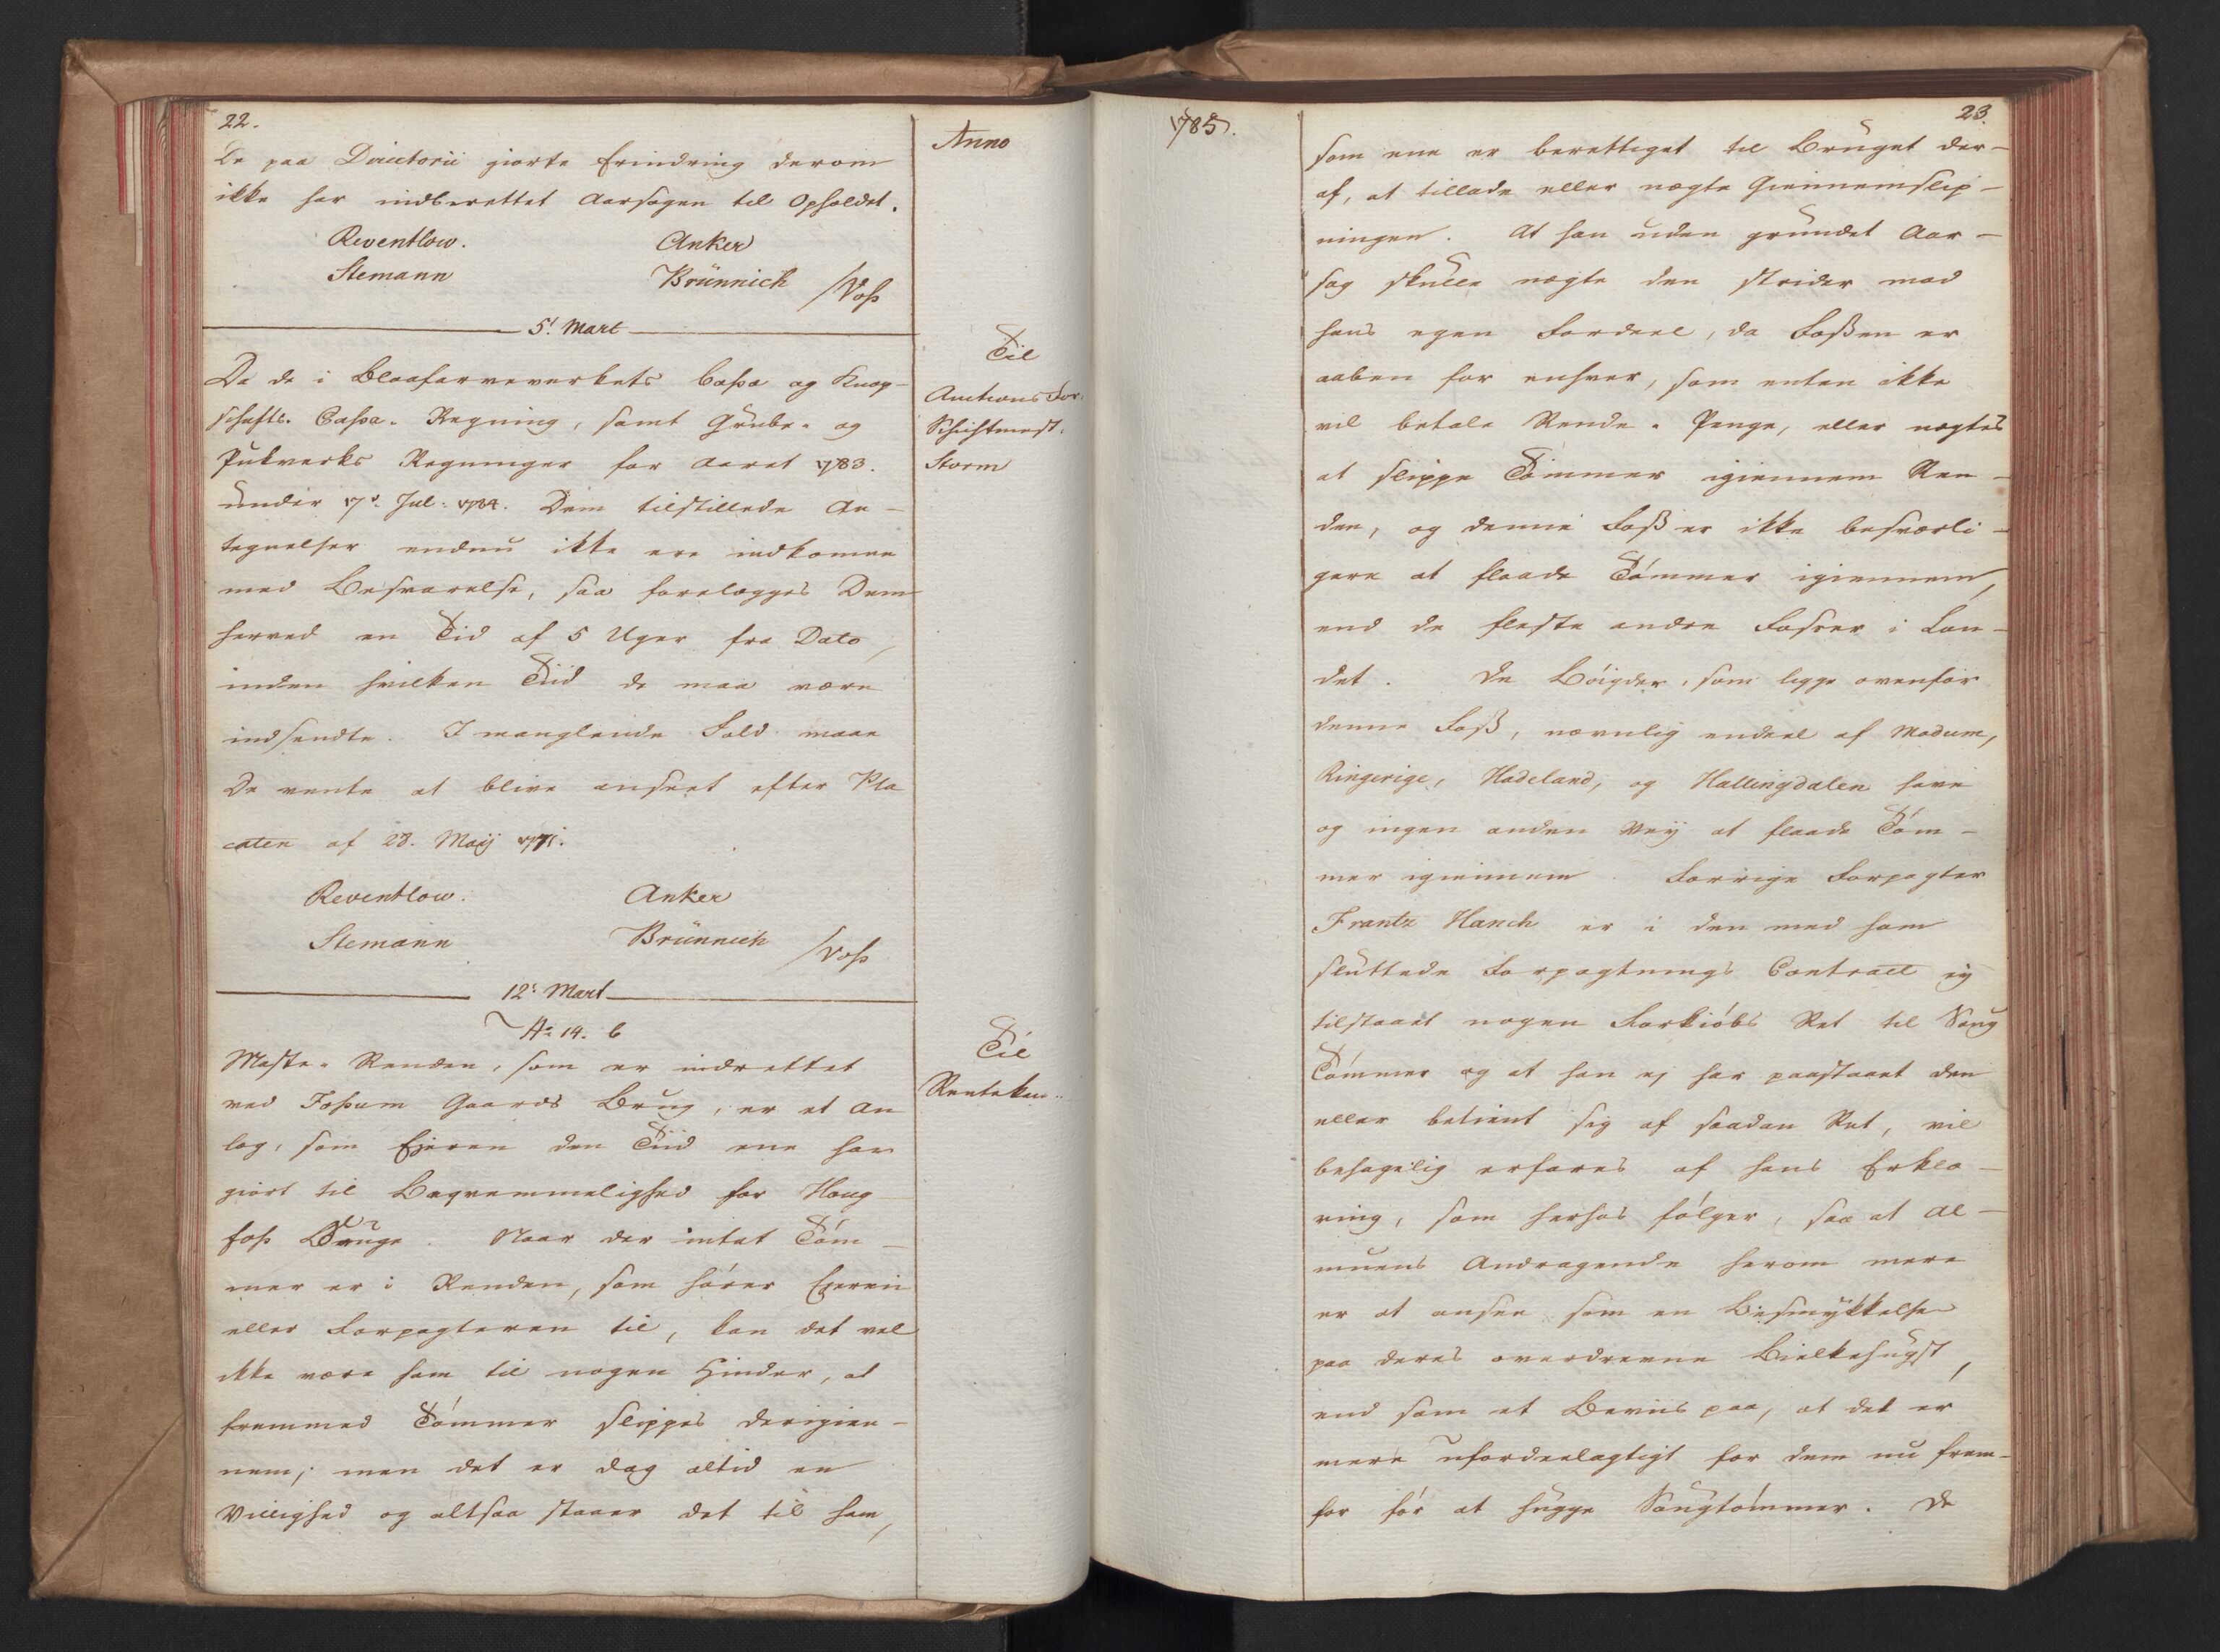 22.
De paa Directorii giorte Erindring derom
ikke har indberettet Aarsagen til Opholdet.
Reventlow. Anker
Stemann Brünnich /Voss
5t Mart
Da de i Blaafarveverkets Cassa og Knap-
schafts-Cassa-Regning, samt Grube- og
Pukverks Regninger for Aaret 1783.
under 17de Jul: 1784. Dem tilstillede An-
tegnelser endnu ikke ere indkomne
med Besvarelse, saa forelægges Dem
herved en Tid af 5 Uger fra Dato,
inden hvilken Tiid de maa være
indsendte. I manglende Fald maae
De vente at blive anseet efter Pla
caten af 28. Maij 1771.
Reventlow. Anker
Stemann Brünnich /Voss
12t Mart
No 14. b
Maste-Renden, som er indrettet
ved Fossum Gaards Brug, er et An
læg, som Ejeren den Tiid ene har
giort til Beqvemmelighed for Houg-
foss Bruge. Naar der intet Töm-
mer er i Renden, som hörer Ejeren
eller Forpagteren til, kan det vel
ikke være ham til nogen Hinder, at
fremmed Tömmer slippes derigien-
nem; men det er dog altid en
Villighed og altsaa staaer det til ham,
Anno
Til
Auctions For.
Schichtmest.
Storm
Til
Rentekam..
1785.
23.
som ene er berettiget til Bruget der-
af, at tillade eller negte Giennemslip-
ningen. At han uden grundet Aar-
sag skulle negte den strider mod
hans egen Fordeel, da Fossen er
aaben for enhver, som enten ikke
vil betale Rende-Penge, eller negtes
at slippe Tömmer igiennem Ren-
den, og denne Foss er ikke besværli-
gere at flaade Tömmer igiennem,
end de fleste andre Fosser i Lan-
det. De Böigder, som ligge ovenfor
denne Foss, nævnlig endeel af Modum,
Ringerige, Hadeland, og Hallingdalen have
og ingen anden Veij at flaade Töm-
mer igiennem. Forrige Forpagter
Frantz Hanch er i den med ham
sluttede Forpagtnings Contract ej
tilstaaet nogen Forkiöbs Ret til Saug
Tömmer og at han ej har paastaaet den
eller betient sig af saadan Ret, vil
behagelig erfares af hans Erklæ-
ring, som herhos fölger, saa at Al-
muens Andragende herom mere
er at ansee som en Besmykkelse
paa deres overdrevne Bielkehugst,
end som et Beviis paa, at det er
mere ufordeelagtigt for dem nu frem-
for för at hugge Saugtömmer. De